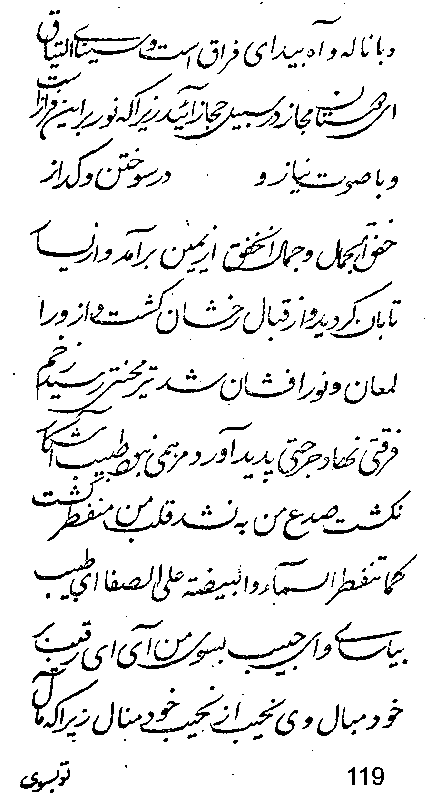 و با ناله و آه بیدای فراق است و سینای التیاق
ای مستان مجاز در سبیل حجاز آئید زیراکه نور براین فراز است
و با صوت نیاز و در سوختن و گداز
خفق الجمال و جمال الخفق از یمین برآمد و از نسا
تابان گردید و از قبال رخشان گشت و از ورا
لمعان و نور افشان شد تیر محنتی رسید زخم
فرقتی نهاد جرحی پدید آورد مرهمی نه طبیب آشکار
نگشت صدع من به نشد قلب من منفطر گشت
کما تنفطر السماء و البیضة علی الصفا ای طیب
بیاسے و ای حبیب بسوی من آی ای رقیب بر
خود مبال و ی نحیب از نحیب خود منال زیراکه مآل
119 تو بسوی